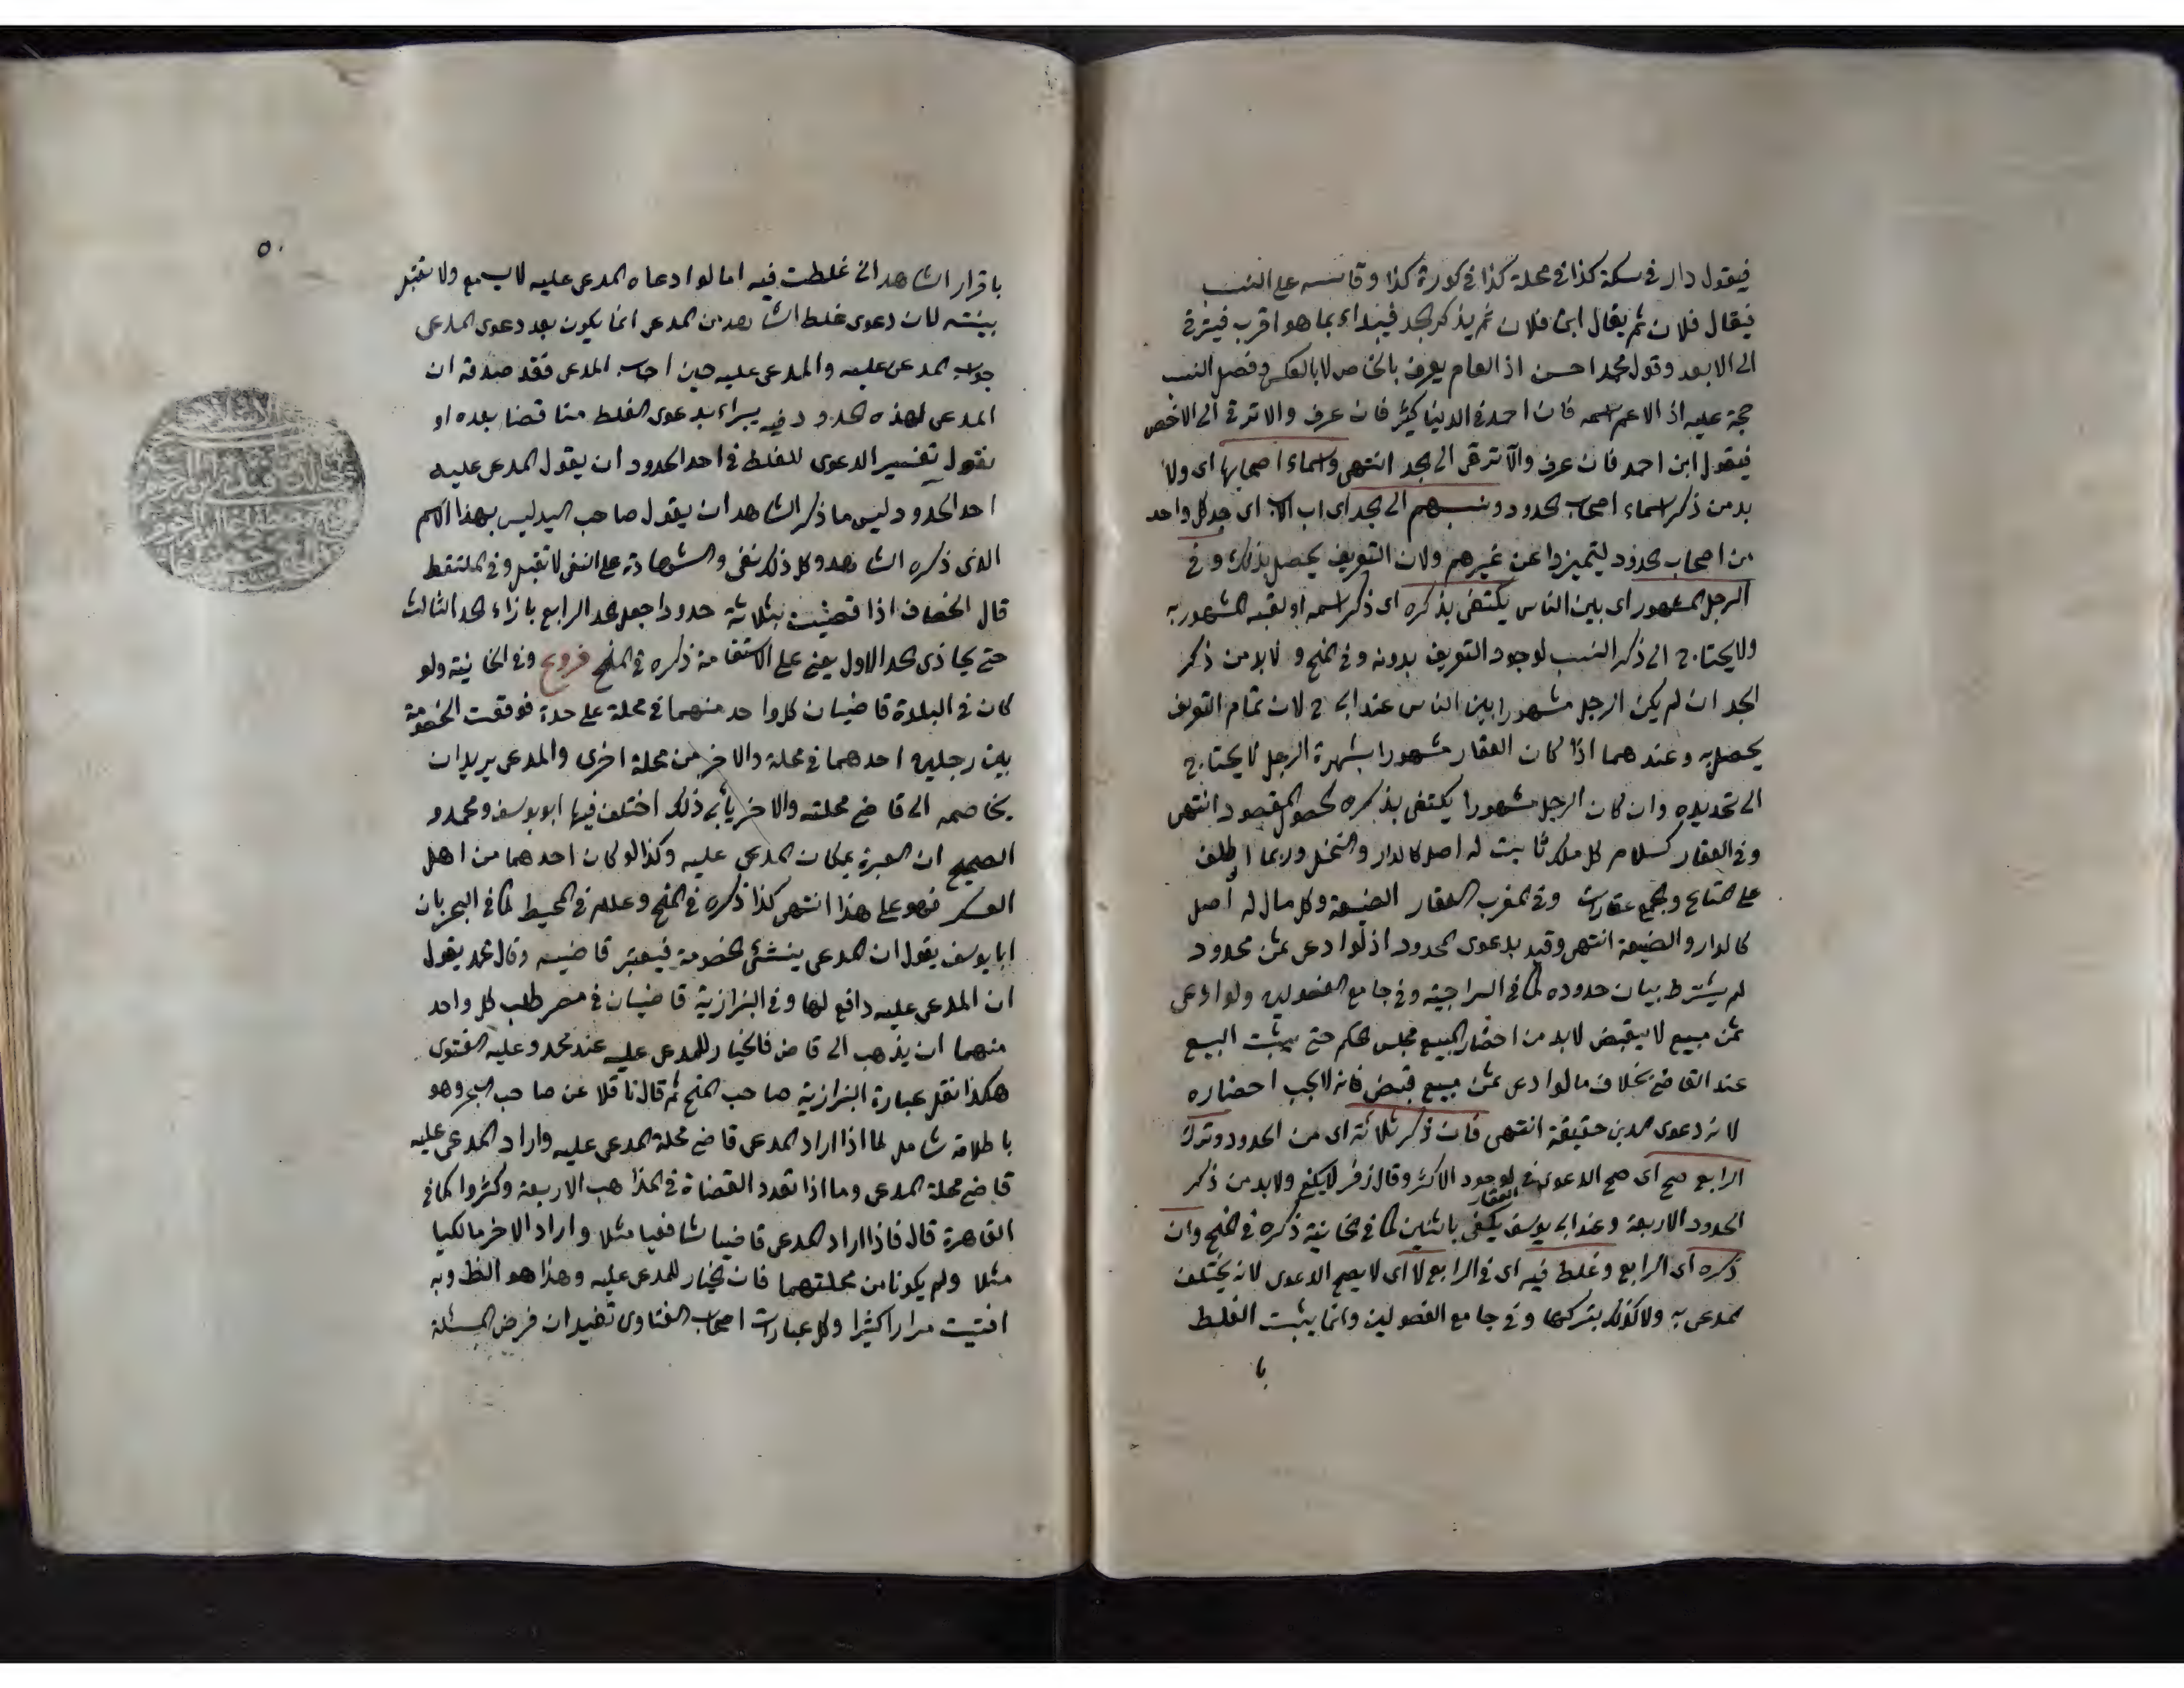 فيقول دار في سكة كذا في محلة كذا في كورة كذا وقاسه على النسب
فيقال فلان ثم يقال ابن فلان ثم يذكر الجد فيبداء بما هو اقرب فيترقى
الى الابعد وقول محمد احسن اذ العام يعرف بالخاص لا بالعكس وفصل النسب
حجة عليه اذ الاعم اسمه فان احمد في الدنيا كثير فان عرف والا ترقى الى الاخص
فيقول ابن احمد فان عرف والا ترقى الى الجد انتهى واسماء اصحابها اى ولا
بد من ذكر اسماء اصحاب الحدود ونسبهم الى الجد اى اب الاب اى جد كل واحد
من اصحاب الحدود ليتميزوا عن غيرهم ولان التعريف يحصل بذلك وفي
الرجل المشهور اى بين الناس يكتفى بذكره اى ذكر اسمه او لقبه المشهور به
ولا يحتاج الى ذكر النسب لوجود التعريف بدونه وفي المنح ولا بد من ذكر
الجد ان لم يكن الرجل مشهورا بين الناس عند ابي ح لان تمام التعريف
يحصل به وعندهما اذا كان العقار مشهورا بشهرة الرجل لا يحتاج
الى تحديده وان كان الرجل مشهورا يكتفى بذكره لحصول المقصود انتهى
وفي العقار كسلام كل ملك ثابت له اصل كالدار والنخل وربما اطلق
على المتاع والجمع عقارات وفي المغرب العقار الضيعة وكل مال له اصل
كالدار والضيعة انتهى وقيد بدعوى المحدود اذ لو ادعى ثمن محدود
لم يشترط بيان حدوده كما في السراجية وفي جامع الفصولين ولو ادعى
ثمن مبيع لا يقبض لا بد من احضار المبيع مجلس الحكم حتى يثبت البيع
عند القاضي بخلاف ما لو ادعى ثمن مبيع قبض فانه لا يجب احضاره
لانه دعوى الدين حقيقة انتهى فان ذكر ثلاثة اى من الحدود وترك
الرابع صح اى صح الدعوى في العقار لوجود الاكثر وقال زفر لا يكفي ولا بد من ذكر
الحدود الاربعة وعند ابي يوسف يكفى باثنين كما في الخانية ذكره في المنح وان
ذكره اى الرابع وغلط فيه اى في الرابع لا اى لا يصح الدعوى لانه يختلف
المدعى به ولا كذلك بتركها وفي جامع الفصولين وانما يثبت الغلط
با
٥٠
باقرار الشاهد انى غلطت فيه اما لو ادعاه المدعى عليه لا يسمع ولا تقبل
بينته لان دعوى غلط الشاهد من المدعى انما يكون بعد دعوى المدعى
جواب المدعى عليه والمدعى عليه حين اجاب المدعى فقد صدقه ان
المدعى لهذه الحدود فيه بدعوى الغلط مناقضا بعده او
نقول تفسير الدعوى للغلط في احد الحدود ان يقول المدعى عليه
احد الحدود ليس ما ذكر الشاهد ان يقول صاحب اليد ليس بهذا الاسم
الذى ذكره الشاهد وكل ذلك نفى والشهادة على النفى لا تقبل وفي الملتقط
قال الخصاف اذا قضيت بثلاثة حدود اجعل الحد الرابع بازاء الحد الثالث
حتى يحاذى الحد الاول يعنى على الاستقامة ذكره في المنح فروع وفي الخانية ولو
كان في البلدة قاضيان كل واحد منهما في محلة على حدة فوقعت الخصومة
بين رجلين احدهما في محلة والاخر من محلة اخرى والمدعى يريد ان
يخاصمه الى قاضي محلته والاخر يأبى ذلك اختلف فيها ابو يوسف ومحمد و
الصحيح ان العبرة بمكان المدعى عليه وكذا لو كان احدهما من اهل
العسكر فهو على هذا انتهى كذا ذكره في المنح وعلله في المحيط كما في البحر بان
ابا يوسف يقول ان المدعى ينشئ الخصومة فيعتبر قاضيه وقال محمد يقول
ان المدعى عليه دافع لها وفي البزازية قاضيان في مصر طلب كل واحد
منهما ان يذهب الى قاض فالخيار للمدعى عليه عند محمد وعليه الفتوى
هكذا نقل عبارة البزازية صاحب المنح ثم قال ناقلا عن صاحب البحر وهو
باطلاقه شامل لما اذا اراد المدعى قاضي محلة المدعى عليه واراد المدعى عليه
قاضي محلة المدعى وما اذا تعدد القضاة في المذاهب الاربعة وكثروا كما في
القاهرة قال فاذا اراد المدعى قاضيا شافعيا مثلا واراد الاخر مالكيا
مثلا ولم يكونا من محلتهما فان الخيار للمدعى عليه وهذا هو الظ وبه
افتيت مرارا كثيرا وكل عبارات اصحاب الفتاوى تفيد ان فرض المسئلة